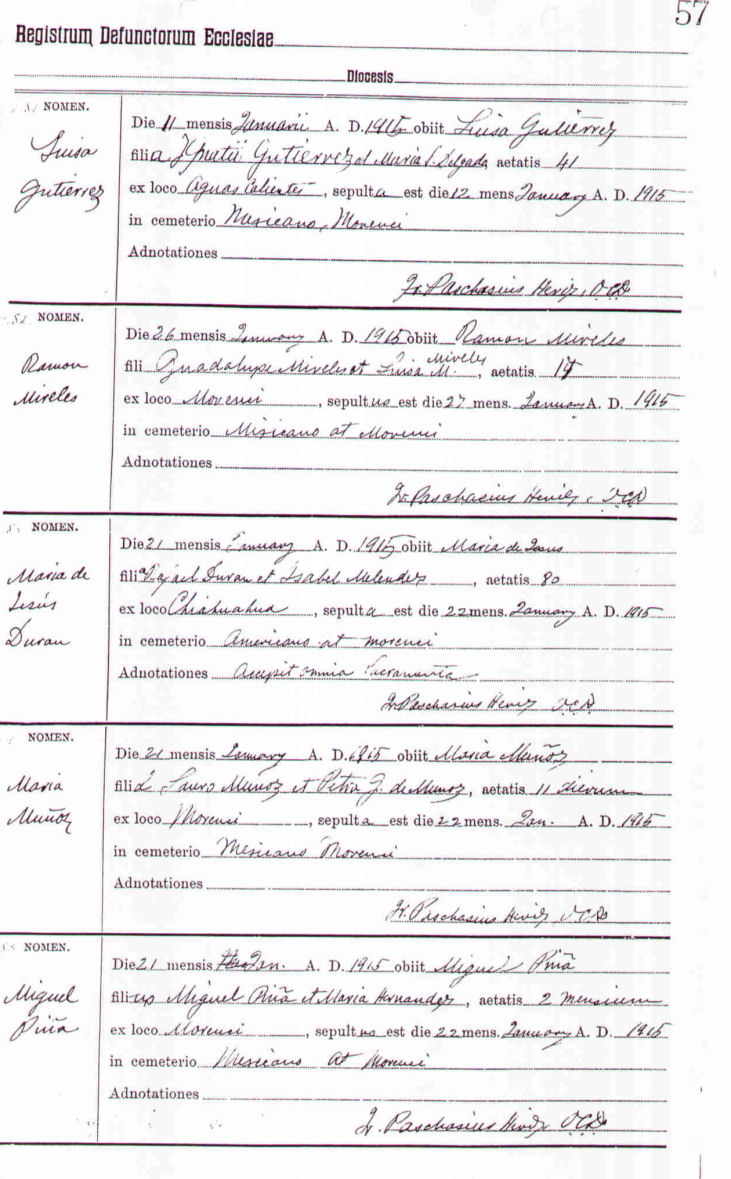 57
Registrum Defunctorum Ecclesiae
Diocesis
NOMEN.
Luisa
Gutiérrez
Die 11 mensis Januarii A. D. 1915 obiit Luisa Gutiérrez
filia Ignatii Gutierrez et Maria S. Delgado, aetatis 41
ex loco Aguas Calientes, sepulta est die 12 mens. January A. D. 1915
in cemeterio Mexicano, Morenci
Adnotationes
Fr. Paschasius Heriz, O.C.D.
52 NOMEN.
Ramon
Mireles
Die 26 mensis January A. D. 1915 obiit Ramon Mireles
fili Guadalupe Mireles et Luisa M. Mireles, aetatis
ex loco Morenci, sepultus est die 27 mens. January A. D. 1915
in cemeterio Mexicano at Morenci
Adnotationes
Fr. Paschasius Heriz, O.C.D.
NOMEN.
Maria de
Jesús
Duran
Die 21 mensis January A. D. 1915 obiit Maria de Jesus
filia Rafael Duran et Isabel Melendez, aetatis 80
ex loco Chiahuahua, sepulta est die 22 mens. January A. D. 1915
in cemeterio Americano at morenci
Adnotationes Accipit omnia Sacramenta
Fr. Paschasius Heriz O.C.D.
NOMEN.
Maria
Muñoz
Die 21 mensis January A. D. 1915 obiit Maria Muñoz
filia Lauro Muñoz et Petra J. de Munoz, aetatis 11 dierum
ex loco Morenci, sepulta est die 22 mens. Jan. A. D. 1915
in cemeterio Mexicano Morenci
Adnotationes
Fr. Paschasius Heriz O.C.D.
NOMEN.
Miguel
Piña
Die 21 mensis Jan. A. D. 1915 obiit Miguel Piña
filius Miguel Piña et Maria Hernandez, aetatis 2 mensium
ex loco Morenci, sepultus est die 22 mens. January A. D. 1915
in cemeterio Mexicano at Morenci
Adnotationes
Fr. Paschasius Heriz O.C.D.